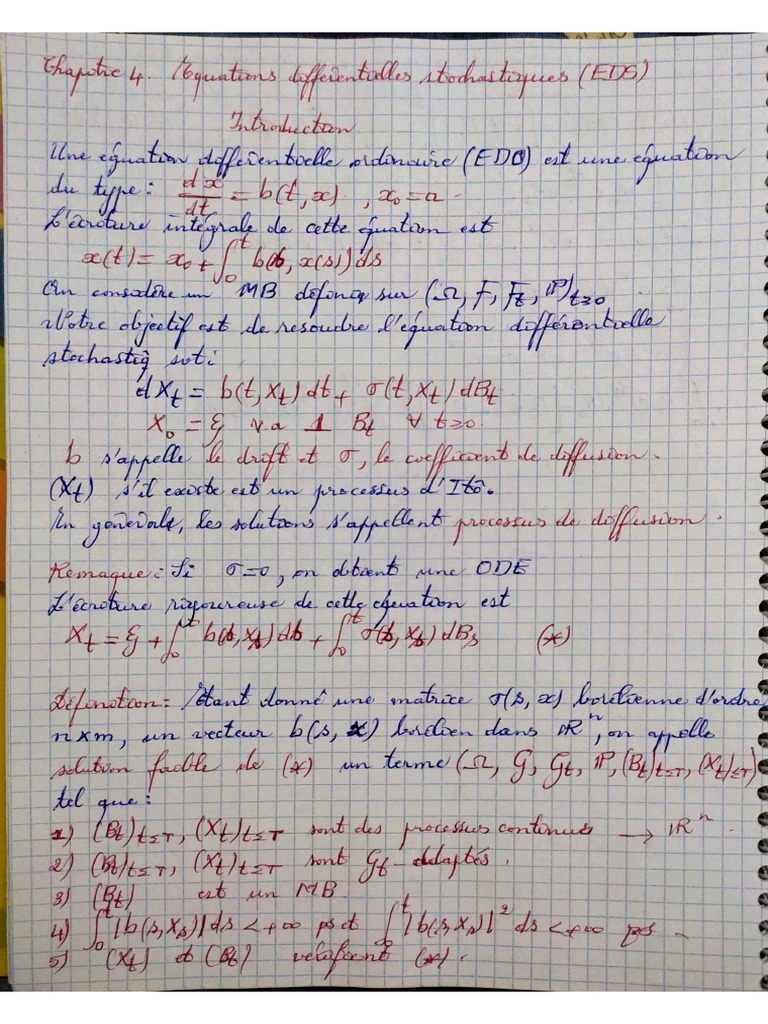 Chapitre 4. Equations différentielles stochastiques (EDS)
Introduction
Une équation différentielle ordinaire (EDO) est une équation
du type : dx/dt = b(t,x) , x₀ = a
L'écriture intégrale de cette équation est
x(t) = x₀ + ∫₀ᵗ b(s, x(s)) ds
On considère un MB définie sur (Ω, F, Fₜ, P)ₜ≥₀
Notre objectif est de resoudre l'équation différentielle
stochastiq suti
dXₜ = b(t, Xₜ) dt + σ(t, Xₜ) dBₜ
X₀ = ξ v a ⊥ Bₜ ∀ t≥0
b s'appelle le drift et σ, le coefficient de diffusion.
(Xₜ) s'il existe est un processus d'Itô.
En générale, les solutions s'appellent processus de diffusion.
Remaque : Si σ=0, on obtient une ODE
L'écriture rigoureuse de cette équation est
Xₜ = ξ + ∫₀ᵗ b(s, Xₛ) ds + ∫₀ᵗ σ(s, Xₛ) dBₛ (*)
Définition : Etant donné une matrice σ(s, x) borélienne d'ordre
n×m, un vecteur b(s, x) borélien dans ℝⁿ, on appelle
solution faible de (*) un terme (Ω, G, Gₜ, P, (Bₜ)ₜ≤T, (Xₜ)≤T)
tel que :
1) (Bₜ)ₜ≤T, (Xₜ)ₜ≤T sont des processus continues → ℝⁿ.
2) (Bₜ)ₜ≤T, (Xₜ)ₜ≤T sont Gₜ-adaptés.
3) (Bₜ) est un MB
4) ∫₀ᵗ |b(s, Xₛ)| ds < +∞ ps et ∫₀ᵗ |b(s, Xₛ)|² ds < +∞ ps.
5) (Xₜ) et (Bₜ) vérifient (*).